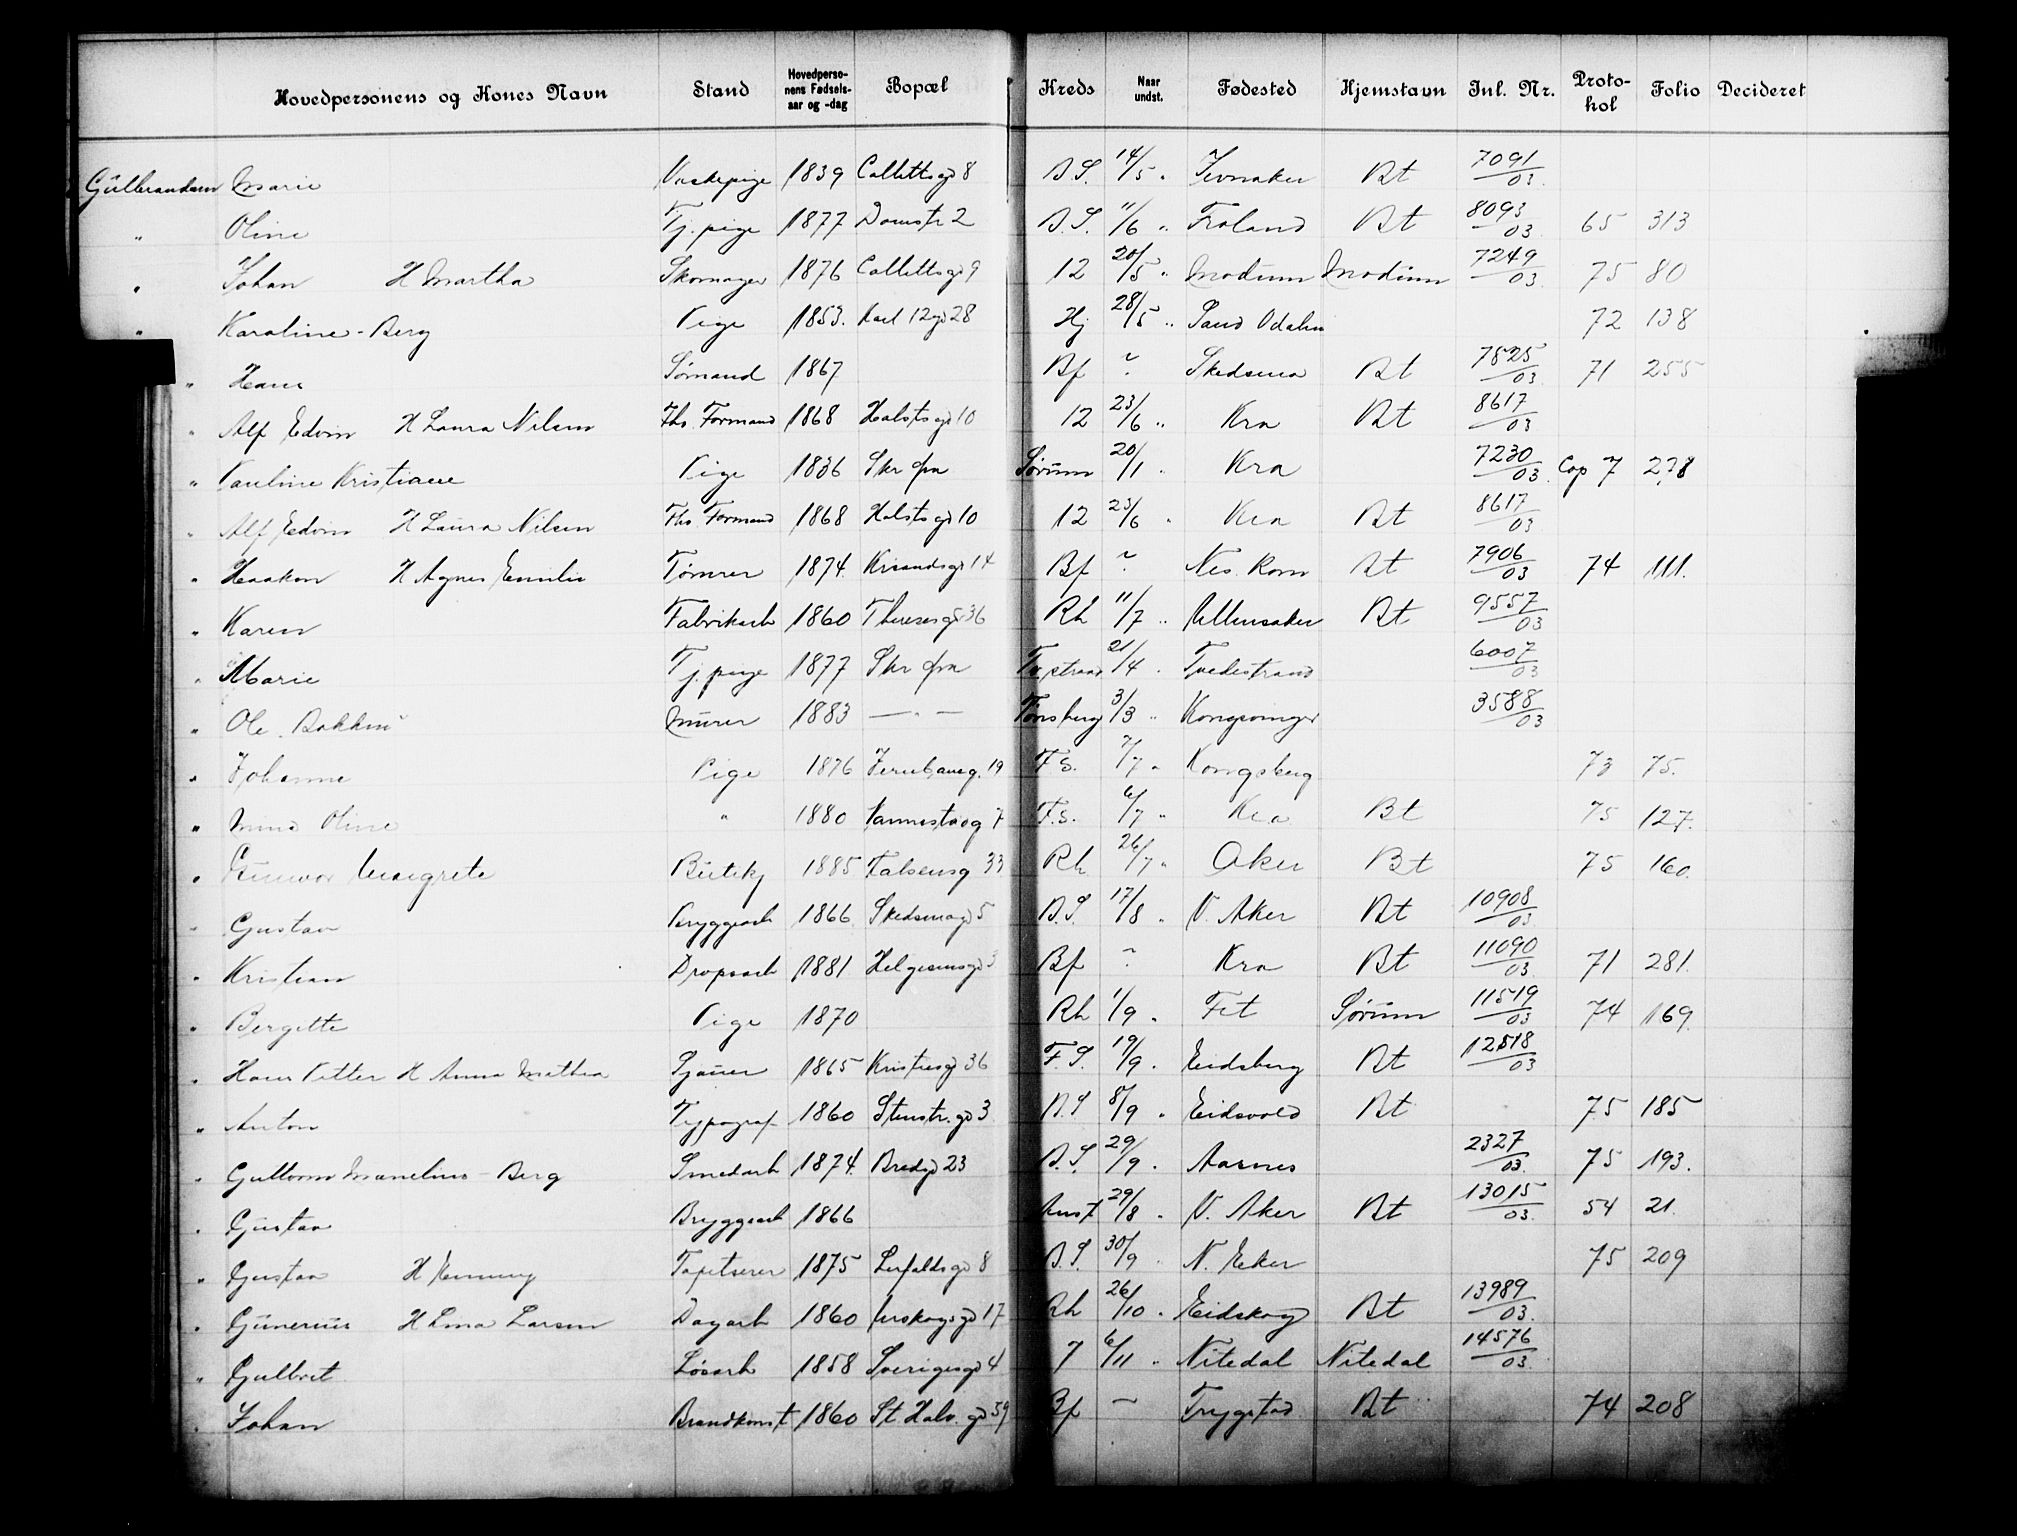 Hovedpersonens og Kones Navn Stand Hovedperso-nens Fødsels-aar og -dag Bopæl Kreds Naar undst. Fødested Hjemstavn Inl. Nr. Proto-kol Folio Decideret
Gulbrandsen Marie Vaskepige 1839 Collettsgd 8 B.S. 14/5 " Jevnaker Bt 7091/03
" Oline Tj. pige 1877 Domstr 2 B.S. 11/6 " Froland Bt 8093/03 65 313
" Johan H Martha Skomager 1876 Collettsgd 9 12 20/5 " Modum Modum 7249/03 75 80
" Karoline - Berg Pige 1853. Karl 12gd 28 Hj 28/5 " Sand Odalen 72 138
" Hans Sømand 1867 Bf ~ Skedsmo Bt 7825/03 71 255
" Alf Edvin H Laura Nilsen Fhs. Formand 1868 Holstsgd 10 12 23/6 " Kra Bt 8617/03
" Pauline Kristiane Pige 1836 Skr fra Sørum 20/1 " Kra 7230/03 Cop 7 278
" Alf Edvin H Laura Nilsen Fhs Formand 1868 Holstsgd 10 12 23/6 " Kra Bt 8617/03
" Haakon H Agnes Emilie Tømrer 1874. Krsandsgd 14 Bf ~ Nes. Rom Bt 7906/03 74 111.
" Karen Fabrikarb 1860 Theresesgd 36 Rh 11/7 " Ullensaker Bt 9557/03
" Marie Tj. pige 1877 Skr fra Tv.strand 21/4 " Tvedestrand 6007/03
" Ole Bakken Murer 1883 — " — Tønsberg 3/3 " Kongsvinger 3588/03
" Johanne Pige 1876 Jernbaneg. 19 F.S. 7/7 " Kongsberg 73 75.
" Oline " 1880 7 F.S. 6/7 " Kra Bt 75 127.
" Gunvor Margrete Butikj 1885 Falsensg 33 Rh 26/7 " Aker Bt 75 160.
" Gustav Bryggearb 1866 Skedsmogd 5 B.S. 17/8 " V. Aker Bt 10908/03
" Kristian Dropsarb 1881 Helgesensgd 3 Bf ~ Kra Bt 11090/03 71 281.
" Bergitte Pige 1870 Rh 1/9 " Fet Sørum 11519/03 74 169.
" Hans Petter H Anna Mathea Sjauer 1865 Kristiesgd 36 F.S. 19/9 " Eidsberg Bt 12518/03
" Anton Typograf 1860 Stenstr. gd 3 B.S 8/9 " Eidsvold Bt 75 185
" Guttorm Manelius - Berg Smedarb 1874. Bredgd 23 B.S. 29/9 " Aasnes 2327/03. 75 193.
" Gustav Bryggearb 1866 Anst 29/8 " V. Aker Bt 13015/03. 54 21.
" Gustav H Tapetserer 1875 Lerfaldsgd 8 B.S. 30/9 " N. Eker 75 209
" Gunerius H Lina Larsen Dagarb 1860 Aurskogsgd 17 Rh 26/10 " Eidskog Bt 13989/03.
" Gulbret Løsarb 1858 Sverigesgd 4 7 6/11 " Nitedal Nitedal 14576/03.
" Johan Brandkonst 1860 St Halv. gd 59 Bf ~ Trygstad Bt 74 208